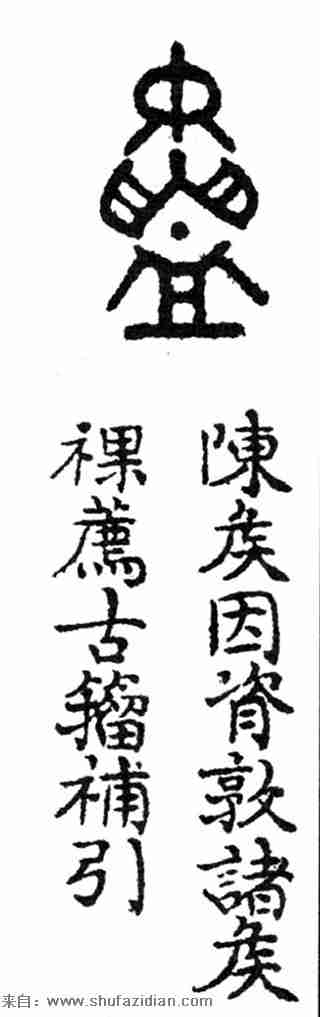 陳矦因敦諸矦
祼薦古籀補引
来自：www.shufazidian.com